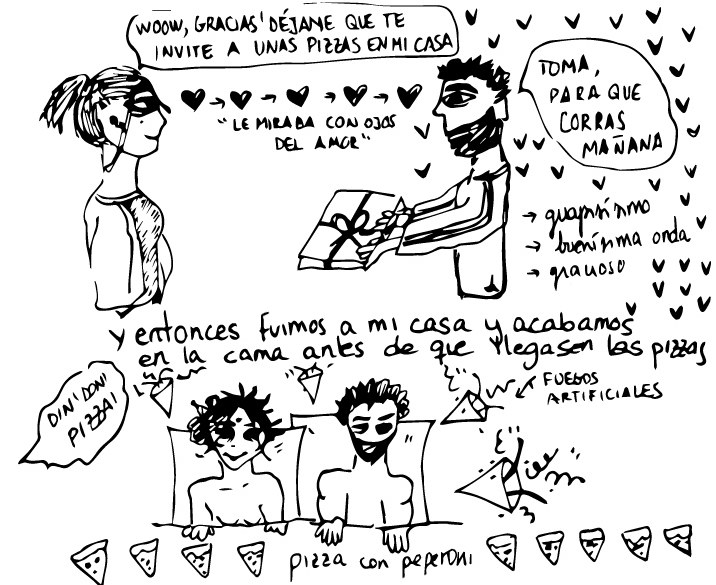 WOOW, GRACIAS! DÉJAME QUE TE
INVITE A UNAS PIZZAS EN MI CASA
TOMA,
PARA QUE
CORRAS
MAÑANA
"LE MIRABA CON OJOS
DEL AMOR"
→ guapísisimo
→ buenísima onda
→ gracioso
y entonces fuimos a mi casa y acabamos
en la cama antes de que llegasen las pizzas
DIN! DON!
PIZZA!
FUEGOS
ARTIFICIALES
pizza con peperoni